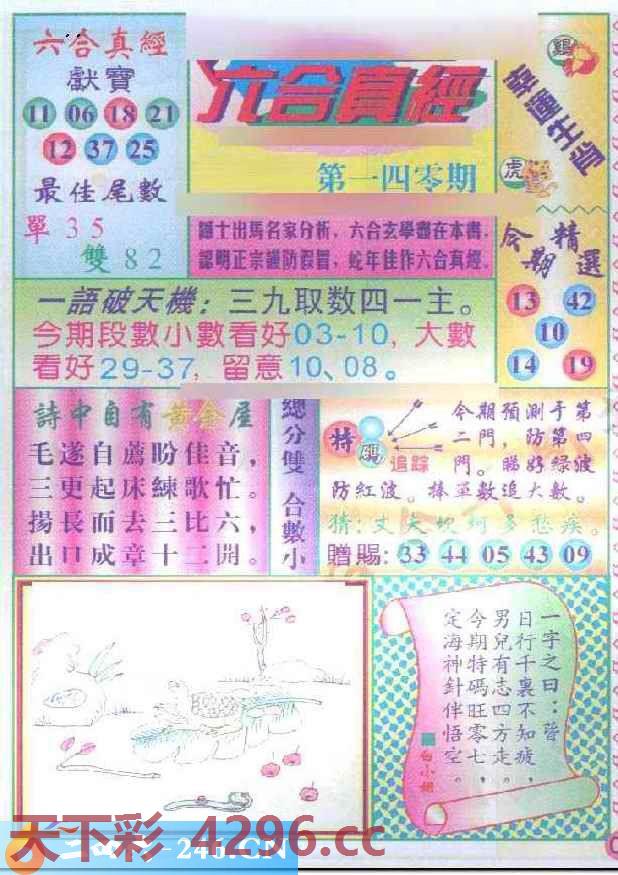 六合真經
獻寶
11 06 18 21
12 37 25
最佳尾數
單 3 5
雙 8 2
六合真經
第一四零期
雞
虎
六合玄學盡在本書,
認明正宗謹防假冒, 蛇年佳作六合真經.
今期精選
13 42
10
14 19
一語破天機: 三九取数四一主。
今期段數小數看好03-10, 大數
看好29-37, 留意10、08。
詩中自有黄金屋
毛遂自薦盼佳音,
三更起床練歌忙。
揚長而去三比六,
出口成章十二開。
總分雙 合數小
特碼
追踪
今期預測于第
二門, 防第四
門。睇好緑波
防紅波。捧單數追大數。
贈賜: 33 44 05 43 09
一字之曰:
日行千裏不知疲,
男兒有志四方走,
今期特碼旺零七,
定海神針伴悟空。
白小姐
天下彩 4296.cc
246.CN